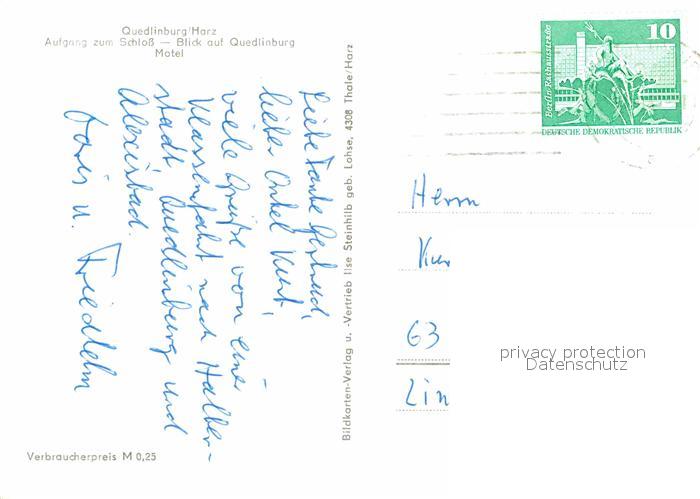 Quedlinburg/Harz
Aufgang zum Schloß — Blick auf Quedlinburg
Motel
Liebe Tante Gertrud,
lieber Onkel Kurt,
viele Grüße von einer
Klassenfahrt nach Halber-
stadt, Quedlinburg und
Alexisbad.
Doris u. Friedhelm
Verbraucherpreis M 0,25
Bildkarten-Verlag u. -Vertrieb Ilse Steinhilb geb. Lohse, 4308 Thale/Harz
10
Berlin, Rathausstraße
DEUTSCHE DEMOKRATISCHE REPUBLIK
Herrn
Kur
63
privacy protection
Datenschutz